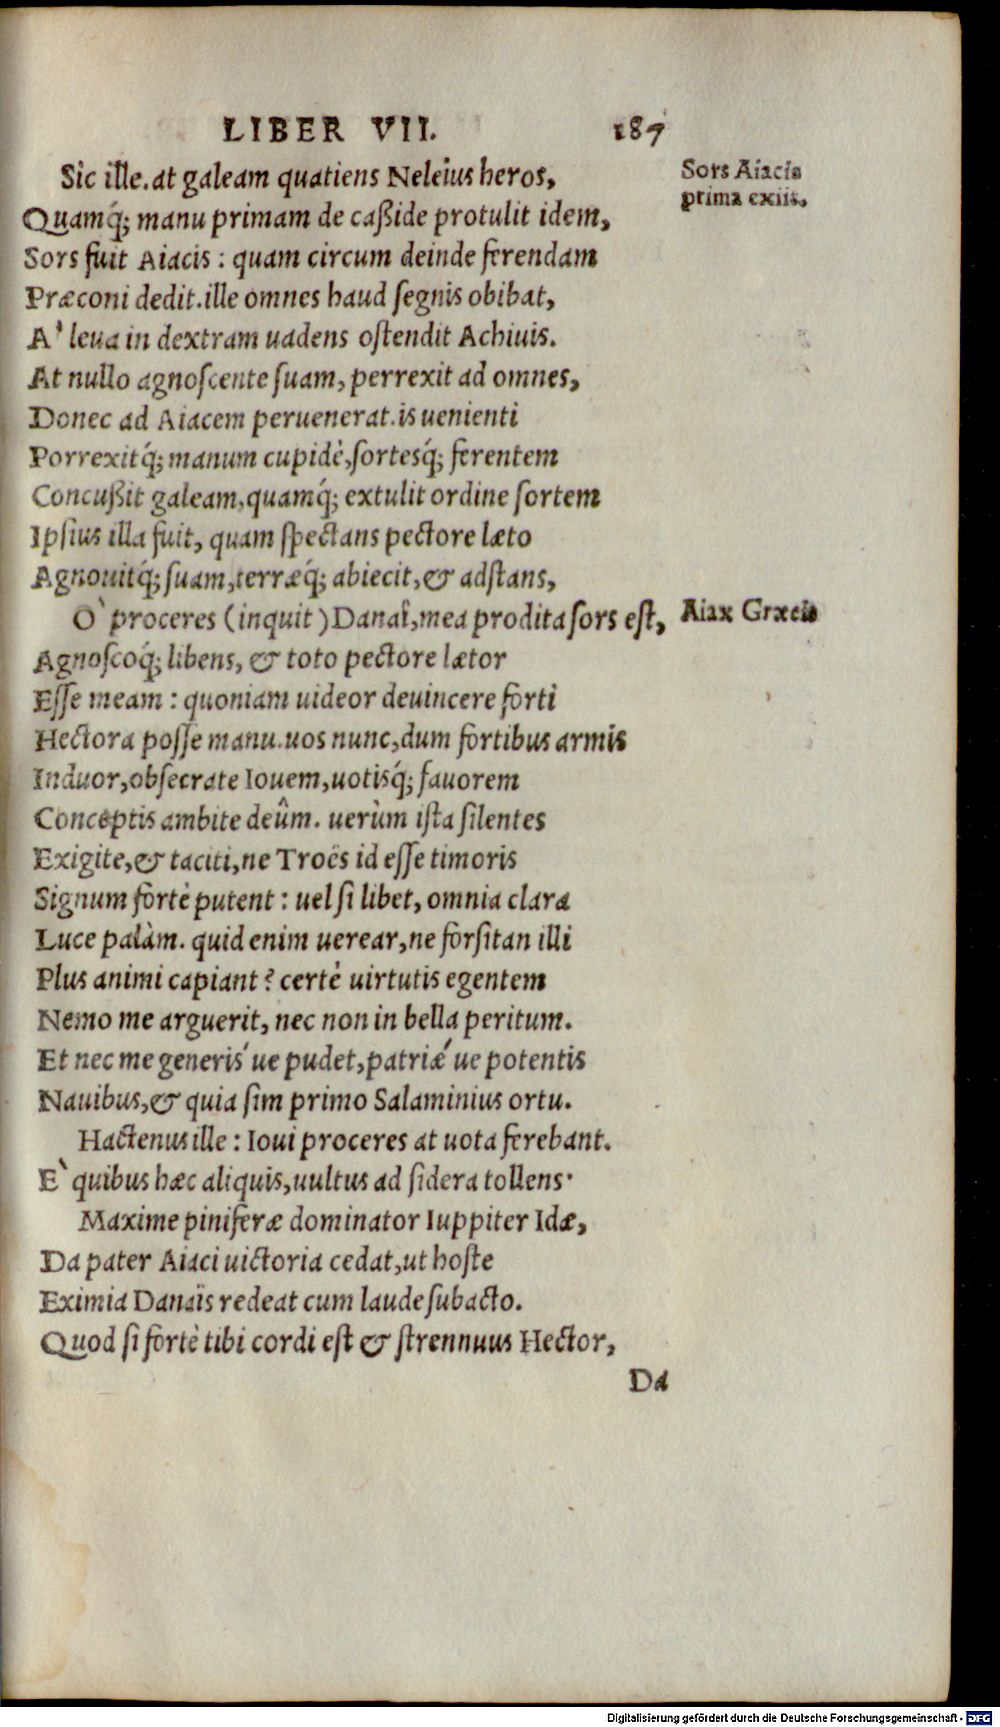 LIBER VII. 187
Sic ille. at galeam quatiens Neleius heros,
Sors Aiacis
prima exiit.
Quamq́; manu primam de caßide protulit idem,
Sors fuit Aiacis : quam circum deinde ferendam
Præconi dedit. ille omnes haud ſegnis obibat,
A` leua in dextram uadens oſtendit Achiuis.
At nullo agnoſcente ſuam, perrexit ad omnes,
Donec ad Aiacem peruenerat. is uenienti
Porrexitq́; manum cupidè, ſortesq́; ferentem
Concußit galeam, quamq́; extulit ordine ſortem
Ipſius illa fuit, quam ſpectans pectore læto
Agnouitq́; ſuam, terræq́; abiecit, & adſtans,
O` proceres (inquit) Danaî, mea prodita ſors eſt,
Aiax Græcis
Agnoſcoq́; libens, & toto pectore lætor
Eſſe meam : quoniam uideor deuincere forti
Hectora poſſe manu. uos nunc, dum fortibus armis
Induor, obſecrate Iouem, uotisq́; fauorem
Conceptis ambite deûm. uerùm iſta ſilentes
Exigite, & taciti, ne Troës id eſſe timoris
Signum fortè putent : uel ſi libet, omnia clara
Luce palàm. quid enim uerear, ne forſitan illi
Plus animi capiant? certè uirtutis egentem
Nemo me arguerit, nec non in bella peritum.
Et nec me generis´ue pudet, patriæ´ue potentis
Nauibus, & quia ſim primo Salaminius ortu.
Hactenus ille : Ioui proceres at uota ferebant.
E` quibus hæc aliquis, uultus ad ſidera tollens·
Maxime piniferæ dominator Iuppiter Idæ,
Da pater Aiaci uictoria cedat, ut hoſte
Eximia Danaïs redeat cum laude ſubacto.
Quod ſi fortè tibi cordi eſt & ſtrennuus Hector,
Da
Digitalisierung gefördert durch die Deutsche Forschungsgemeinschaft - DFG